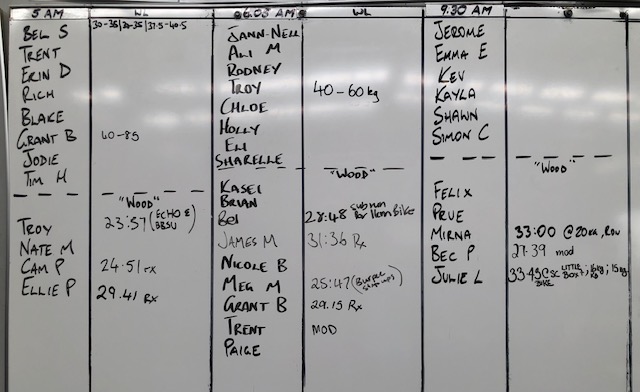 5 AM WL
BEL S 30-35/20-35/37.5-40.5
TRENT
ERIN D
RICH
BLAKE
GRANT B 60-85
JODIE
TIM H
"WOOD"
TROY 23:57 (ECHO & BBSU)
NATE M
CAM P 24.51 rx
ELLIE P 29.41 Rx
6.03 AM WL
JANN-NELL
ALI M
RODNEY
TROY 40-60kg
CHLOE
HOLLY
ELI
SHARELLE
"WOOD"
KASEI
BRIAN
BEI 28:48 sub run for 1km Bike
JAMES M 31:36 Rx
NICOLE B
MEG M 25:47 (Burpee step ups)
GRANT B 29.15 Rx
TRENT MOD
PAIGE
9.30 AM
JEROME
EMMA E
KEV
KAYLA
SHAWN
SIMON C
"WOOD"
FELIX
PRUE
MIRNA 33:00 @ 20kg, ROW
BEC P 27.39 mod
JULIE L 33.45 LITTLE BOX BIKE